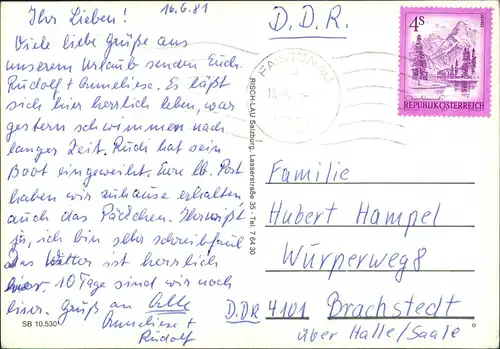 Ihr Lieben! 16.6.81
Viele liebe Grüße aus
unserem Urlaub senden Euch
Rudolf + Anneliese. Es läßt
sich hier herrlich leben, war
gestern schwimmen nach
langer Zeit. Rudi hat sein
Boot eingeweiht. Eure lb. Post
haben wir zuhause erhalten
auch das Päckchen. Ihr wißt
ja, ich bin sehr schreibfaul
Das Wetter ist herrlich
hier. 10 Tage sind wir noch
hier. Gruß an Alle
Anneliese +
Rudolf
SB 10.530
RISCH-LAU Salzburg, Lasserstraße 35 - Tel. 7 64 30
D.D.R.
4S
REPUBLIK ÖSTERREICH
Familie
Hubert Hampel
Würperweg 8
D.DR 4101 Brachstedt
über Halle/Saale